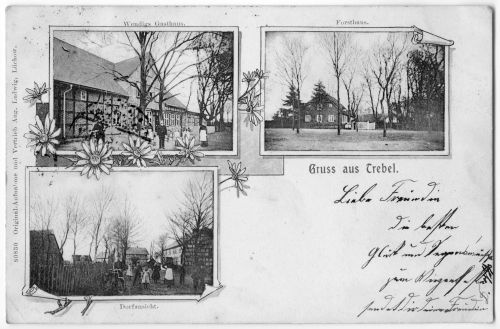 Wendigs Gasthaus.
Forsthaus.
Gruss aus Trebel.
Dorfansicht.
50830 Original-Aufnahme und Vertrieb Aug. Ludwig, Lüchow.
Liebe Freundin
die besten
Glück und Segenswünsche
zum
sendet dir deine Freundin